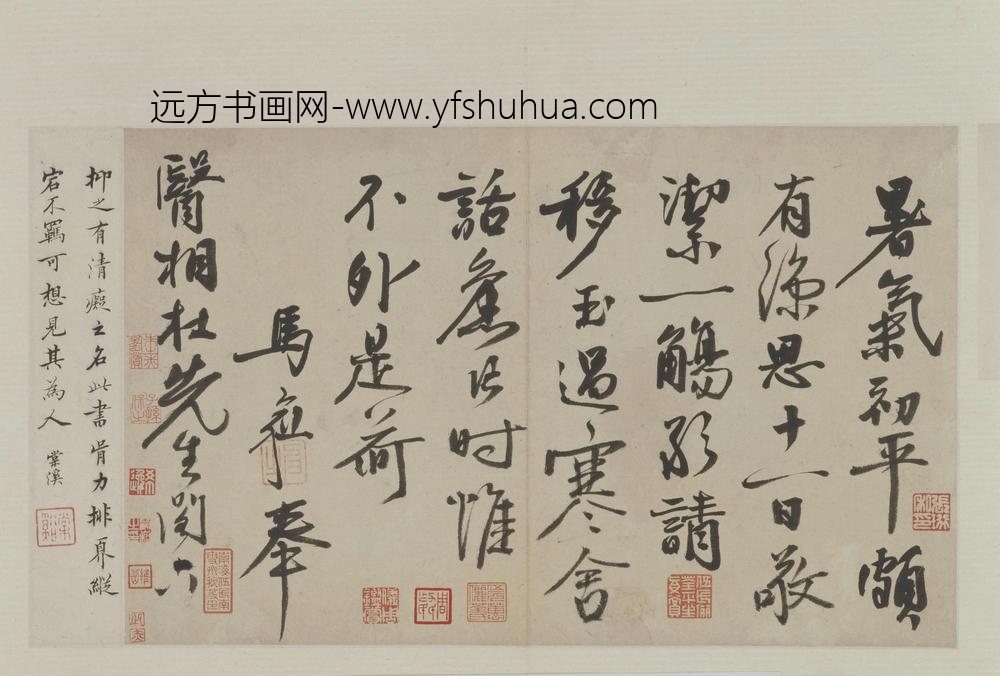 远方书画网-www.yfshuhua.com
暑氣初平頗
有涼思十一日敬
潔一觴請
移玉過寒舍
話舊片时惟
不外是荷
馬愈奉
醫相杜先生閣下
抑之有清癡之名此書骨力排奡縱
宕不羈可想見其為人 棠溪